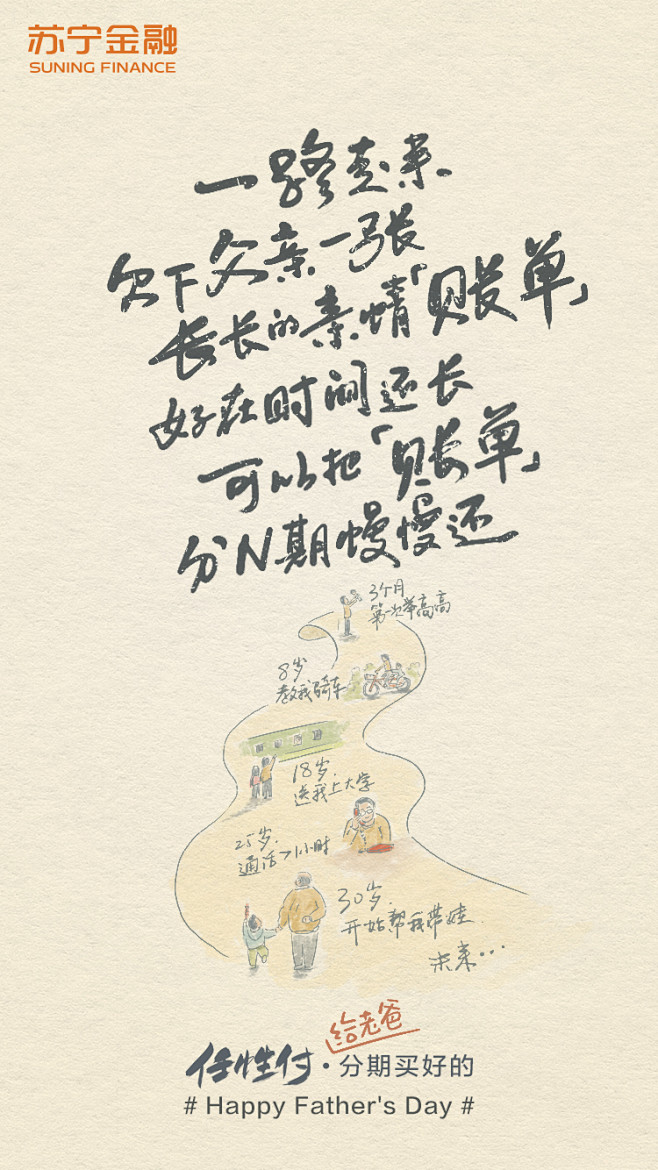 苏宁金融
SUNING FINANCE
一路走来
欠下父亲一张
长长的亲情「账单」
好在时间还长
可以把「账单」
分N期慢慢还
3个月
第一次举高高
8岁
教我骑车
18岁.
送我上大学
25岁.
通话>1小时
30岁.
开始帮我带娃
未来...
给老爸
任性付·分期买好的
# Happy Father's Day #